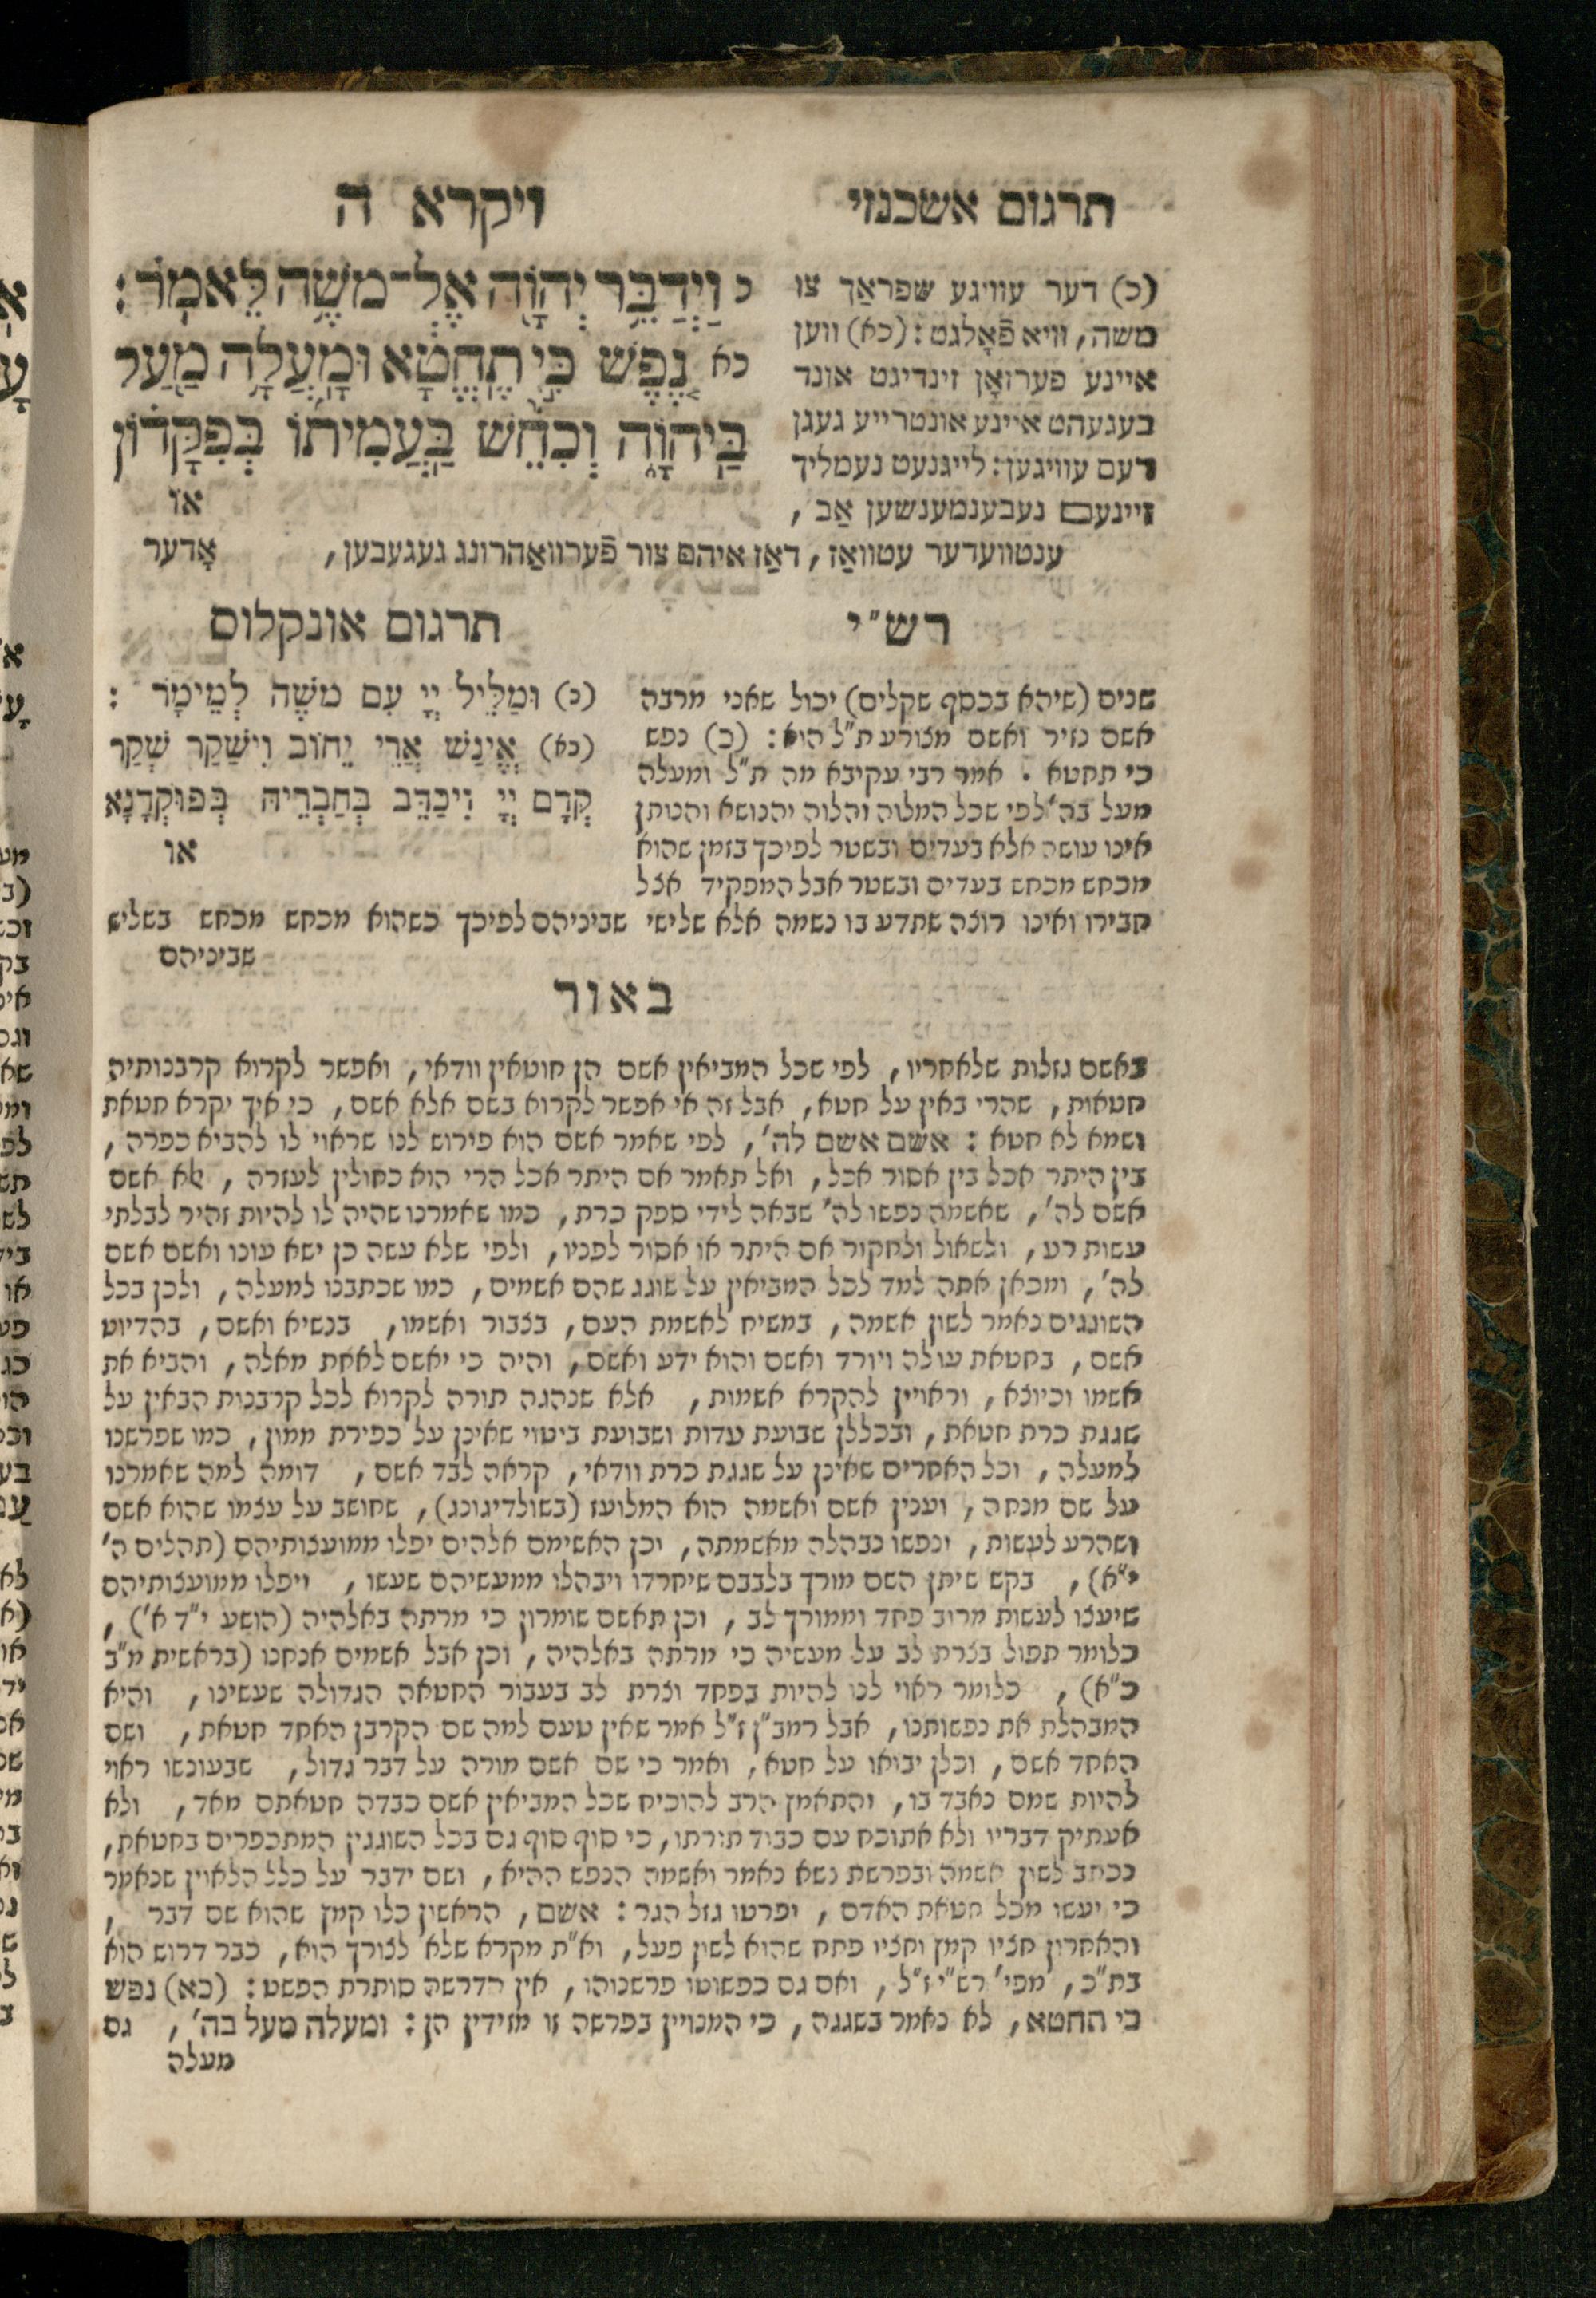 תרגום אשכנזי
ויקרא ה
(כ) דער עוויגע שפראַך צו
משה, וויא פֿאָלגט: (כא) ווען
איינע פערזאָן זינדיגט אונד
בעגעהט איינע אונטרייע געגן
דעם עוויגען: לייגנעט נעמליך
זיינעם נעבענמענשען אַב,
ענטוועדער עטוואַז, דאַז איהם צור פֿערוואַהרונג געגעבען, אָדער
כ וַיְדַבֵּ֥ר יְהוָ֖ה אֶל־מֹשֶׁ֥ה לֵּאמֹֽר:
כא נֶ֚פֶשׁ כִּ֣י תֶֽחֱטָ֔א וּמָֽעֲלָ֥ה מַ֖עַל
בַּֽיהוָֹ֑ה וְכִחֵ֨שׁ בַּֽעֲמִית֜וֹ בְּפִקָּד֗וֹן
או
רש"י
שנים (שיהא בכסף שקלים) יכול שאני מרבה
אשם נזיר ואשם מצורע ת"ל הוא: (כ) נפש
כי תחטא. אמר רבי עקיבא מה ת"ל ומעלה
מעל בה' לפי שכל המלוה והלוה והנושא והנותן
אינו עושה אלא בעדים ובשטר לפיכך בזמן שהוא
מכחש מכחש בעדים ובשטר אבל המפקיד אצל
חבירו ואינו רוצה שתדע בו נשמה אלא שלישי שביניהם לפיכך כשהוא מכחש מכחש בשליש
שביניהם
תרגום אונקלוס
(כ) וּמַלֵּיל יְיָ עִם מֹשֶׁה לְמֵימָר:
(כא) אֱינַשׁ אֲרֵי יֵחוֹב וִישַׁקַּר שְׁקַר
קֳדָם יְיָ וִיכַדֵּב בְּחַבְרֵיהּ בְּפוּקְדָנָא
או
באור
באשם גזלות שלאחריו, לפי שכל המביאין אשם הן חוטאין וודאי, ואפשר לקרוא קרבנותיה
חטאות, שהרי באין על חטא, אבל זה אי אפשר לקרוא בשם אלא אשם, כי איך יקרא חטאת
ושמא לא חטא: אשם אשם לה', לפי שאמר אשם הוא פירוש לנו שראוי לו להביא כפרה,
בין היתר אכל בין אסור אכל, ואל תאמר אם היתר אכל הרי הוא כחולין לעזרה, לא אשם
אשם לה', שאשמה נפשו לה' שבאה לידי ספק כרת, כמו שאמרנו שהיה לו להיות זהיר לבלתי
עשות רע, ולשאול ולחקור אם היתר או אסור לפניו, ולפי שלא עשה כן ישא עונו ואשם אשם
לה', ומכאן אתה למד לכל המביאין על שוגג שהם אשמים, כמו שכתבנו למעלה, ולכן בכל
השוגגים נאמר לשון אשמה, במשיח לאשמת העם, בצבור ואשמו, בנשיא ואשם, בהדיוט
אשם, בחטאת עולה ויורד ואשם והוא ידע ואשם, והיה כי יאשם לאחת מאלה, והביא את
אשמו וכיוצא, וראויין להקרא אשמות, אלא שנהגה תורה לקרוא לכל קרבנות הבאין על
שגגת כרת חטאת, ובכללן שבועת עדות ושבועת ביטוי שאינן על כפירת ממון, כמו שפרשנו
למעלה, וכל האחרים שאינן על שגגת כרת וודאי, קראה לבד אשם, דומה למה שאמרנו
על שם מנחה, וענין אשם ואשמה הוא המלועז (בשולדיגונג), שחושב על עצמו שהוא אשם
ושהרע לעשות, ונפשו נבהלה מאשמתה, וכן האשימם אלהים יפלו ממועצותיהם (תהלים ה'
י"א), בקש שיתן השם מורך בלבבם שיחרדו ויבהלו ממעשיהם שעשו, ויפלו ממועצותיהם
שיעצו לעשות מרוב פחד וממורך לב, וכן תאשם שומרון כי מרתה באלהיה (הושע י"ד א'),
כלומר תפול בצרת לב על מעשיה כי מרתה באלהיה, וכן אבל אשמים אנחנו (בראשית מ"ב
כ"א), כלומר ראוי לנו להיות בפחד וצרת לב בעבור החטאה הגדולה שעשינו, והיא
המבהלת את נפשותנו, אבל רמב"ן ז"ל אמר שאין טעם למה שם הקרבן האחד חטאת, ושם
האחד אשם, וכלן יבואו על חטא, ואמר כי שם אשם מורה על דבר גדול, שבעונשו ראוי
להיות שמם נאבד בו, והתאמן הרב להוכיח שכל המביאין אשם כבדה חטאתם מאד, ולא
אעתיק דבריו ולא אתוכח עם כבוד תורתו, כי סוף סוף גם בכל השוגגין המתכפרים בחטאת,
נכתב לשון אשמה ובפרשת נשא נאמר ואשמה הנפש ההיא, ושם ידבר על כלל הלאוין שנאמר
כי יעשו מכל חטאת האדם, ופרטו גזל הגר: אשם, הראשון כלו קמן שהוא שם דבר,
והאחרון חציו קמן וחציו פתח שהוא לשון פעל, וא"ת מקרא שלא לצורך הוא, כבר דרוש הוא
בת"כ, מפי' רש"י ז"ל, ואם גם כפשוטו פרשנוהו, אין הדרשה סותרת הפשט: (כא) נפש
כי תחטא, לא נאמר בשגגה, כי המנויין בפרשה זו מזידין הן: ומעלה מעל בה', גם
מעלה